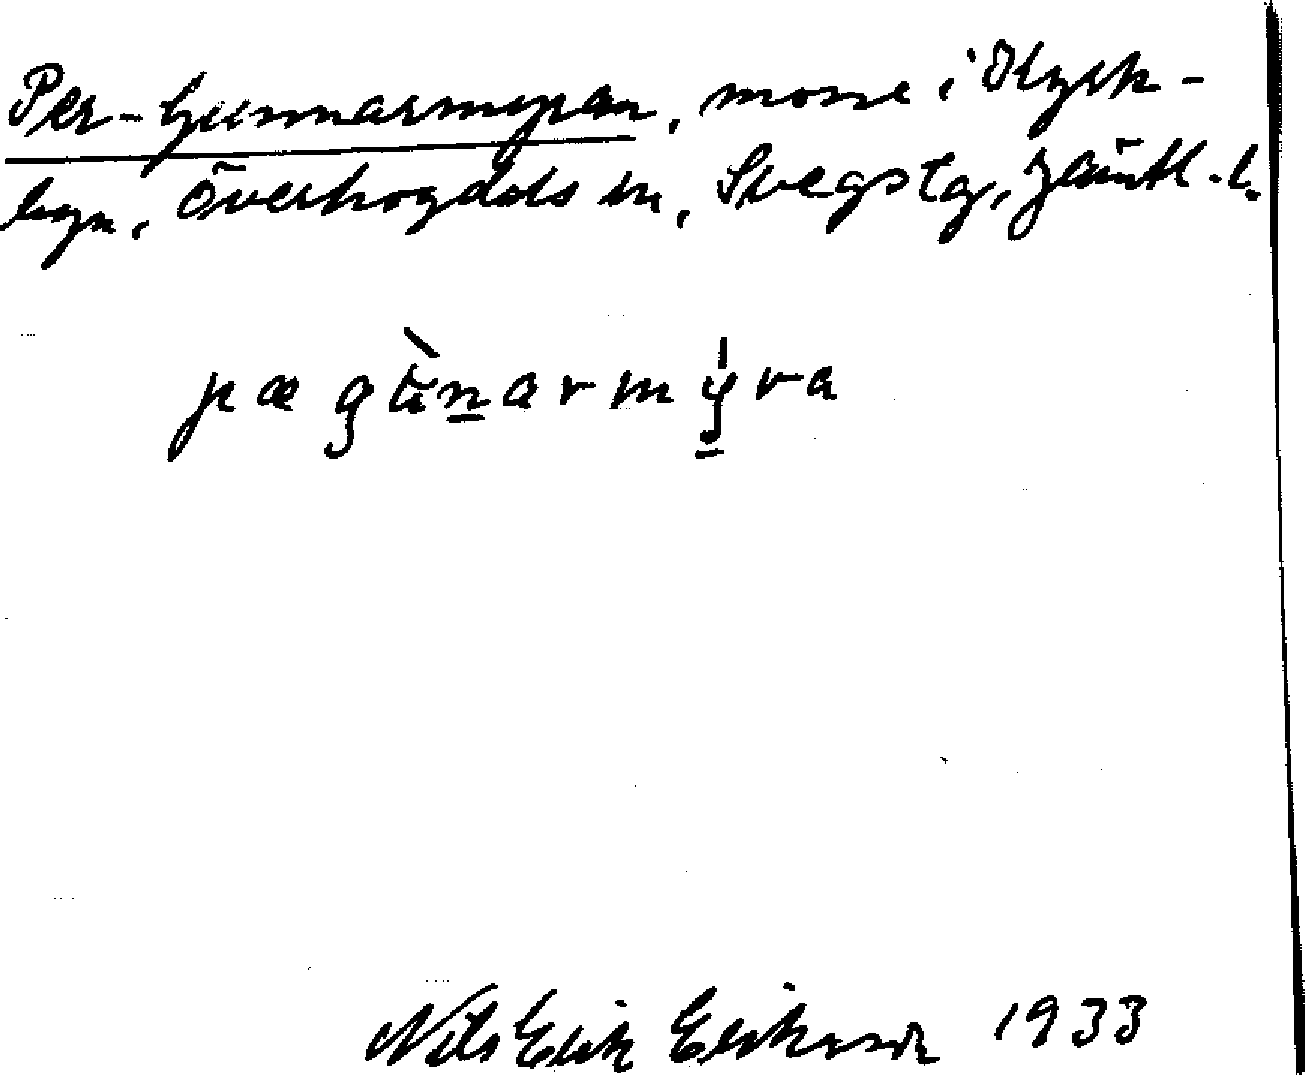 Per-Gunnarmyran, mosse i Ölysk-
byn, Överhogdals sn, Svegs tg, Jämtl. l.
pæ gùnarmýra
Nils Erik Eriksson 1933